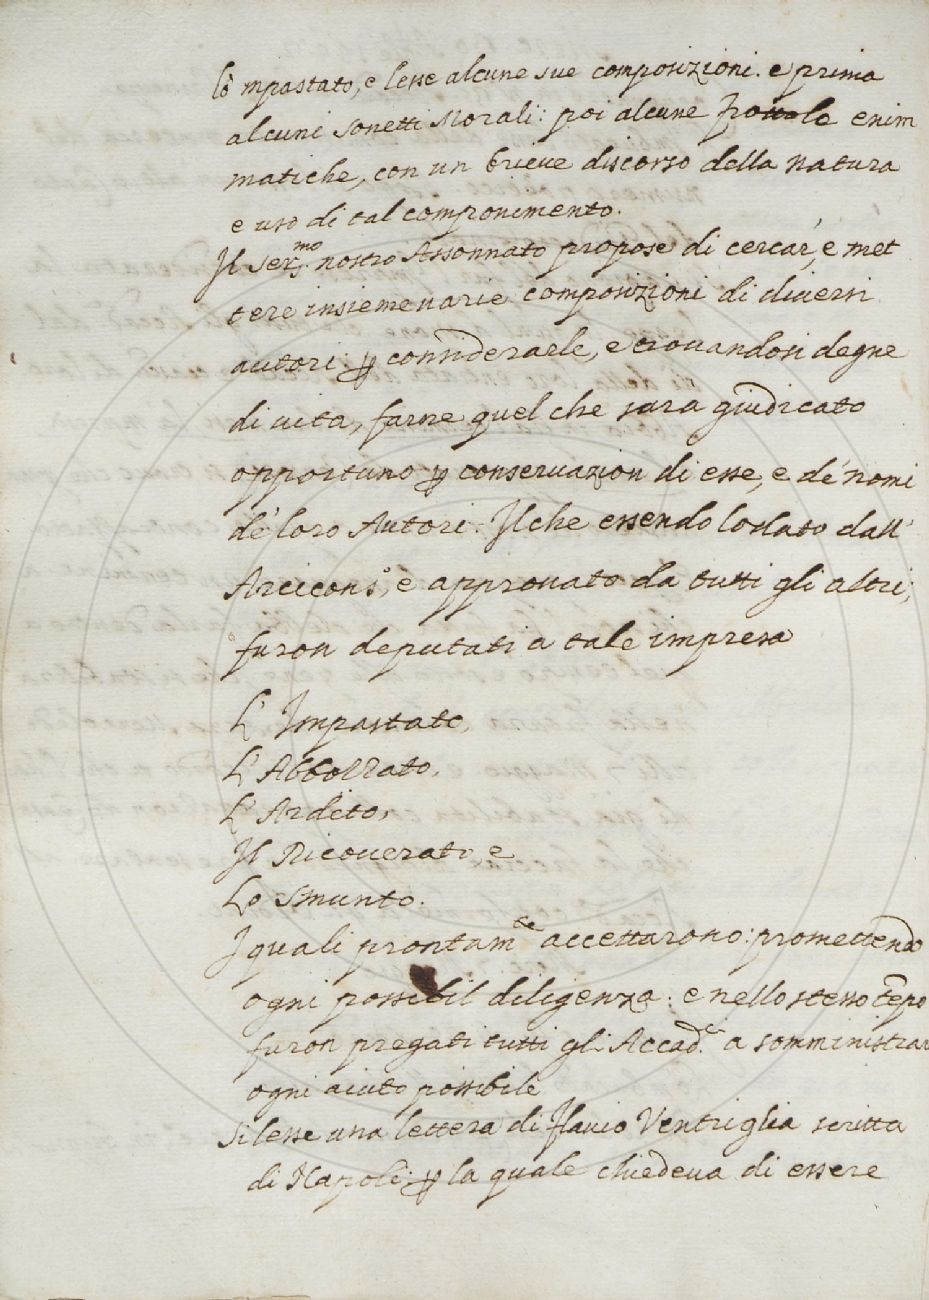 lo mpastato, e lesse alcune sue composizioni. e prima
alcuni sonetti Morali: poi alcune frottole enim
matiche, con un brieue discorso della natura
e uso di tal componimento.
Il ser.mo nostro Assonnato propose di cercar, e met
tere insieme uarie composizioni di diuersi
autori ꝑ considerarle, e trouandosi degne
di uita, farne quel che sara giudicato
opportuno ꝑ conseruazion di esse, e de' nomi
de' loro Autori. Il che essendo lodato dall'
Arcicons.o, e approuato da tutti gli altri,
furon deputati a tale impresa
L' Impastato,
L' Abbozzato,
L' Ardito,
Il Ricouerato e
Lo Smunto.
I quali prontam.te accettarono: promettendo
ogni possibil diligenza: e nello stesso tẽpo
furon pregati tutti gli Accad.ci a somministrar
ogni aiuto possibile
Si lesse una lettera di Flauio Ventriglia scritta
di Napoli, ꝑ la quale chiedeua di essere